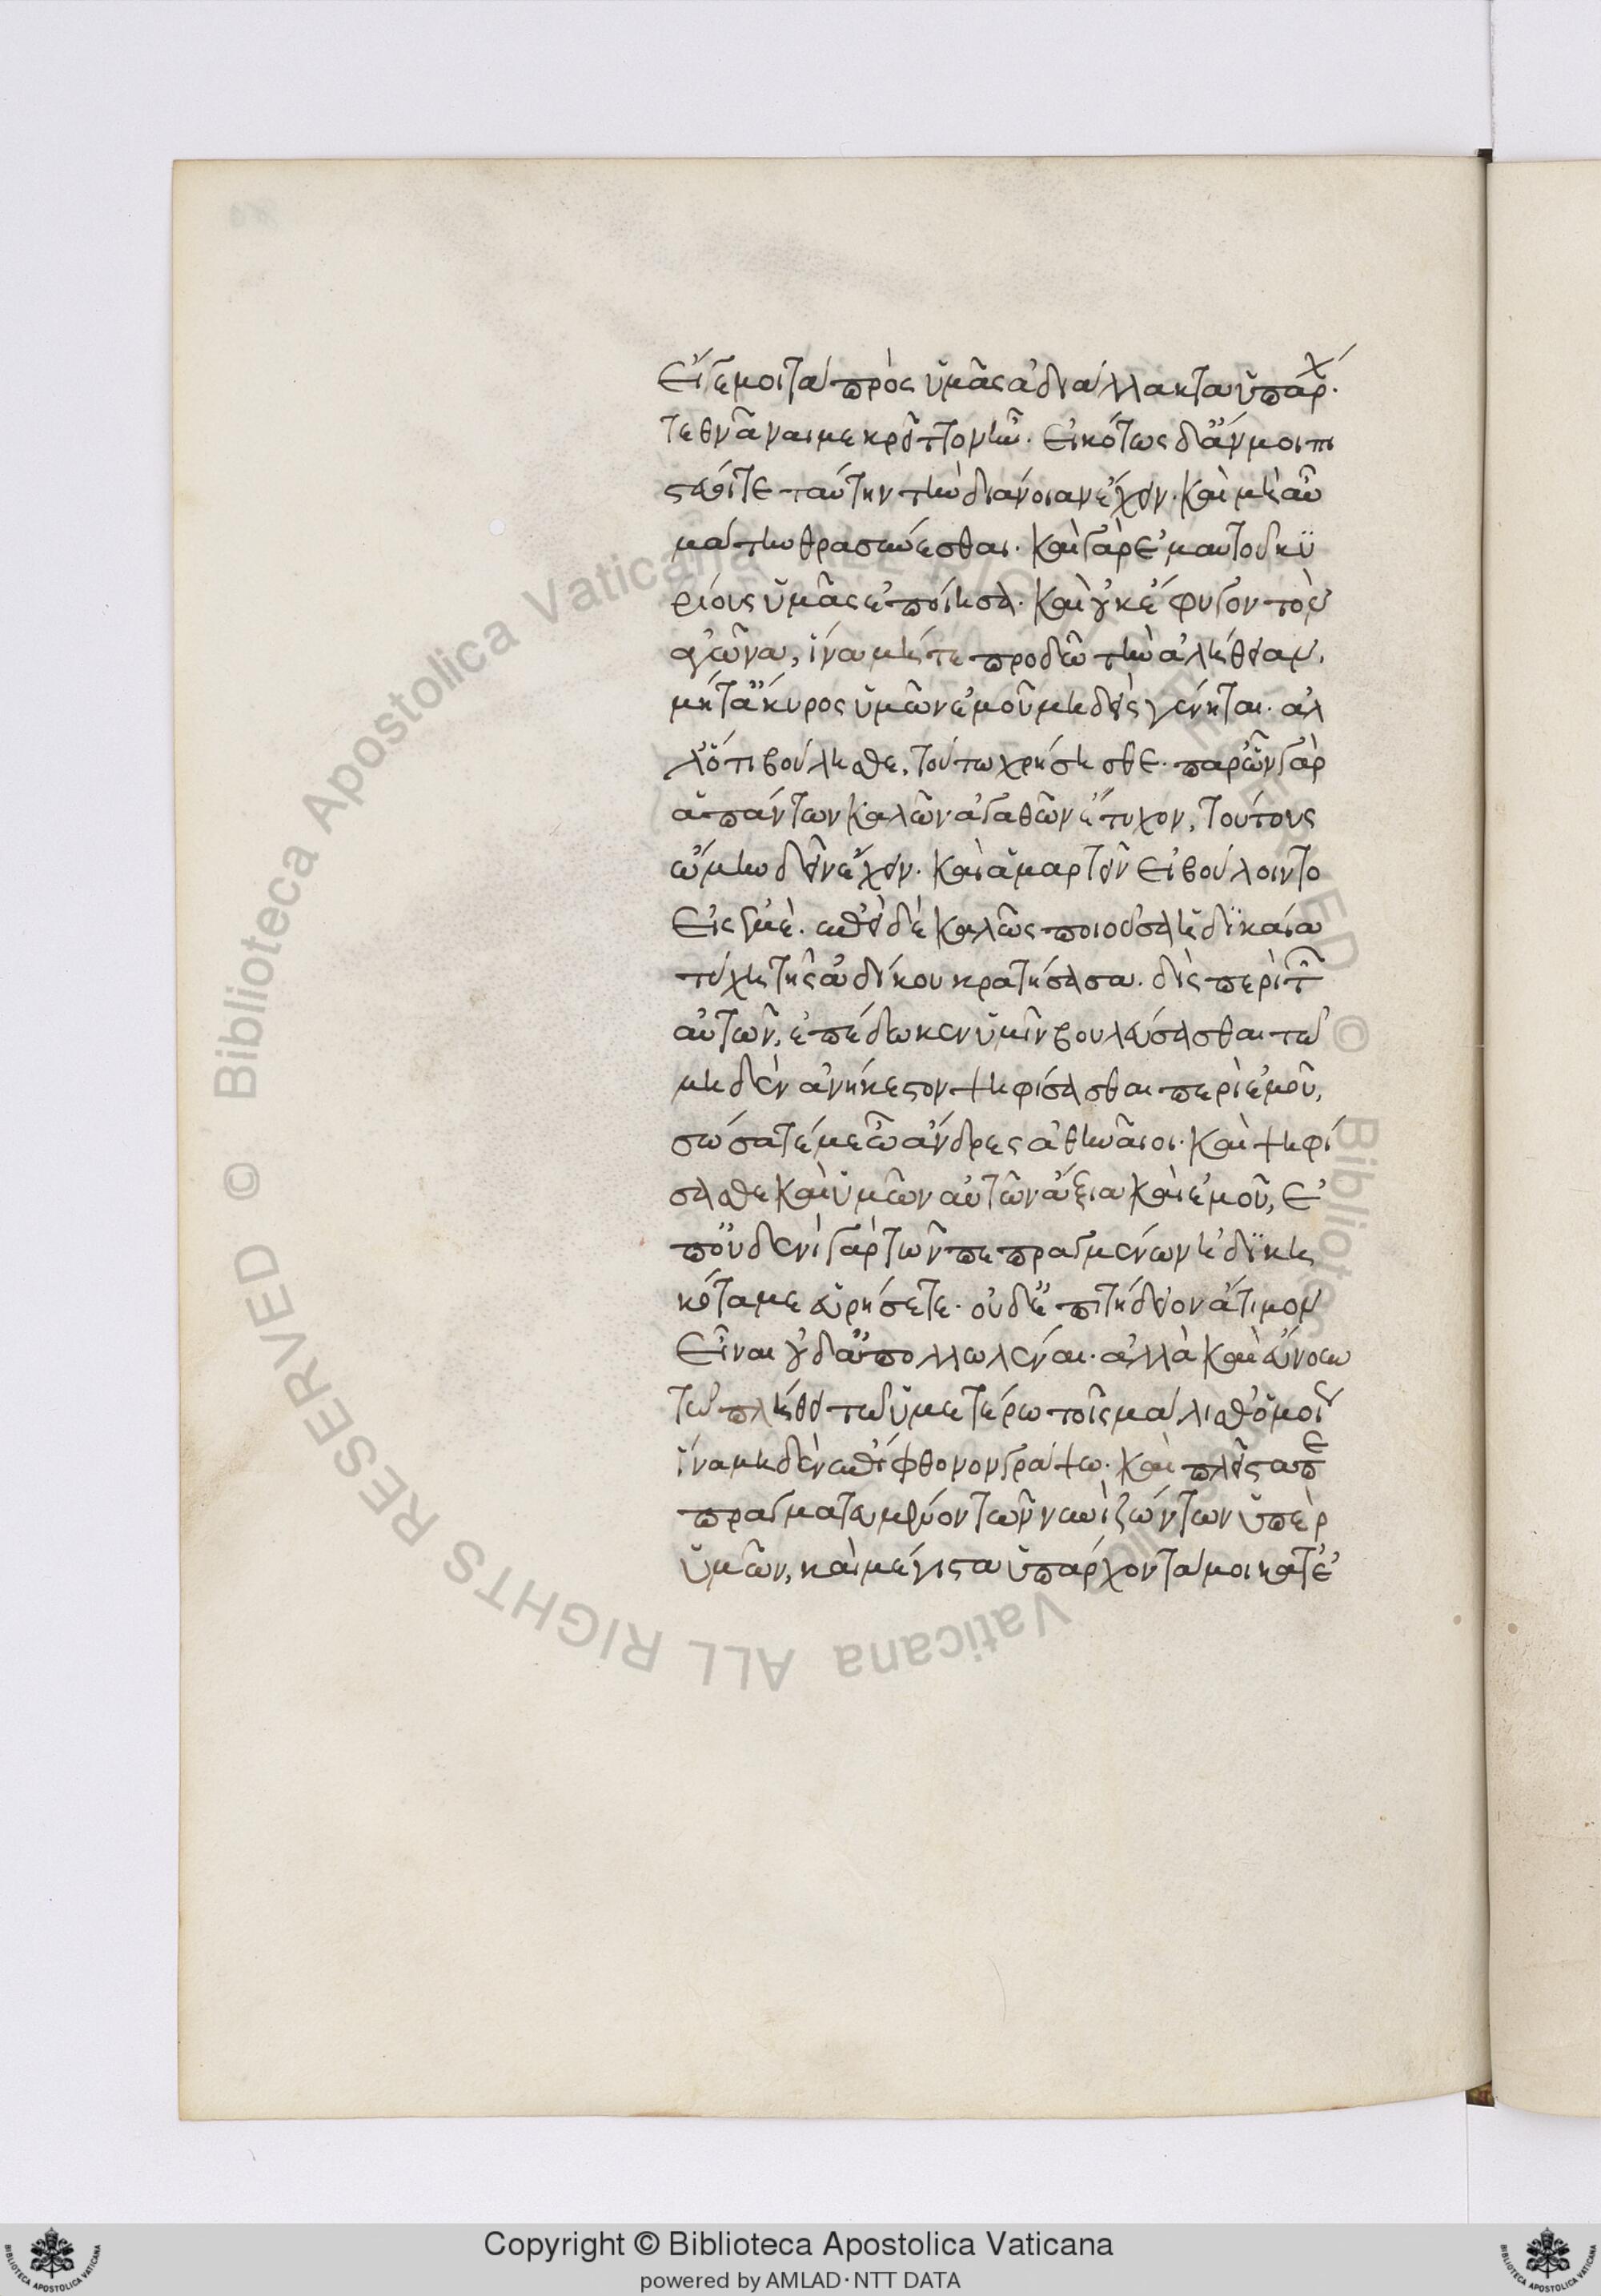 εἴ γε μοι τὰ πρὸς ὑμᾶς ἀδιάλλακτα ὑπάρχ.
τεθνᾶναι με κρεῖττον ἦν. εἰκότως δ' ἄν μοι πι
στεύοιτε ταύτην τὴν διάνοιαν ἔχειν. καὶ μὴ νῦν
μάτην θρασύνεσθαι. καὶ γὰρ ἐμαυτοῦ κυ
ρίους ὑμᾶς ἐποίησα. καὶ οὐκ ἔφυγον τὸν
ἀγῶνα, ἵνα μήτε προδῶ τὴν ἀλήθειαν.
μήτ' ἄκυρος ὑμῶν ἐμοῦ μηδεὶς γένηται. ἀλ
λ' ὅτι βούλησθε, τούτω χρήσησθε. παρ' ὧν γὰρ
ἁπάντων καλῶν ἀγαθῶν ἔτυχον, τούτους
ᾤμην δεῖν ἔχειν. καὶ ἁμαρτεῖν εἰ βούλοιντο
εἰς ἐμέ. ἐπεὶ δὲ καλῶς ποιοῦσα ἡ δικαία
τύχη τῆς ἀδίκου κρατήσασα. δὶς περὶ τῶν
αὐτῶν, ἐπέδωκεν ὑμῖν βουλεύσασθαι τῶ
μηδὲν ἀνήκεστον ψηφίσασθαι περὶ ἐμοῦ,
σώσατέ με ὦ ἄνδρες ἀθηναῖοι. καὶ ψηφί
σασθε καὶ ὑμῶν αὐτῶν ἄξια καὶ ἐμοῦ, ἐ
π' οὐδενὶ γὰρ τῶν πεπραγμένων ἠδικη
κότα με εὑρήσετε. οὐδ' ἐπιτήδειον ἄτιμον
εἶναι οὐδ' ἀπολλωλέναι. ἀλλὰ καὶ εὔνουν
τῶ πλήθει τῶ ὑμετέρω τοῖς μάλισθ' ὁμοί
ἵνα μηδὲν ἐπίφθονον γράψω. καὶ πλεῖστα πε
πραγματευμένον τῶν νυνὶ ζώντων ὑπὲρ
ὑμῶν, καὶ μέγιστα ὑπάρχοντά μοι κατ' ἐ
Copyright © Biblioteca Apostolica Vaticana
powered by AMLAD·NTT DATA